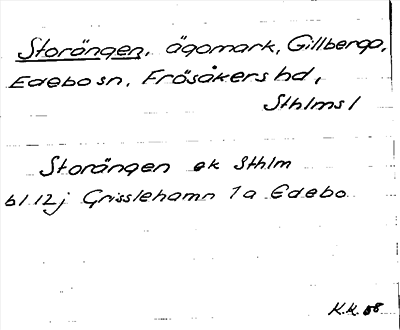 Storängen, ägomark, Gillberga,
Edebo sn, Frösåkers hd,
Sthlms l
Storängen ek Sthlm
bl 12j Grisslehamn 1a Edebo
K.K. 58